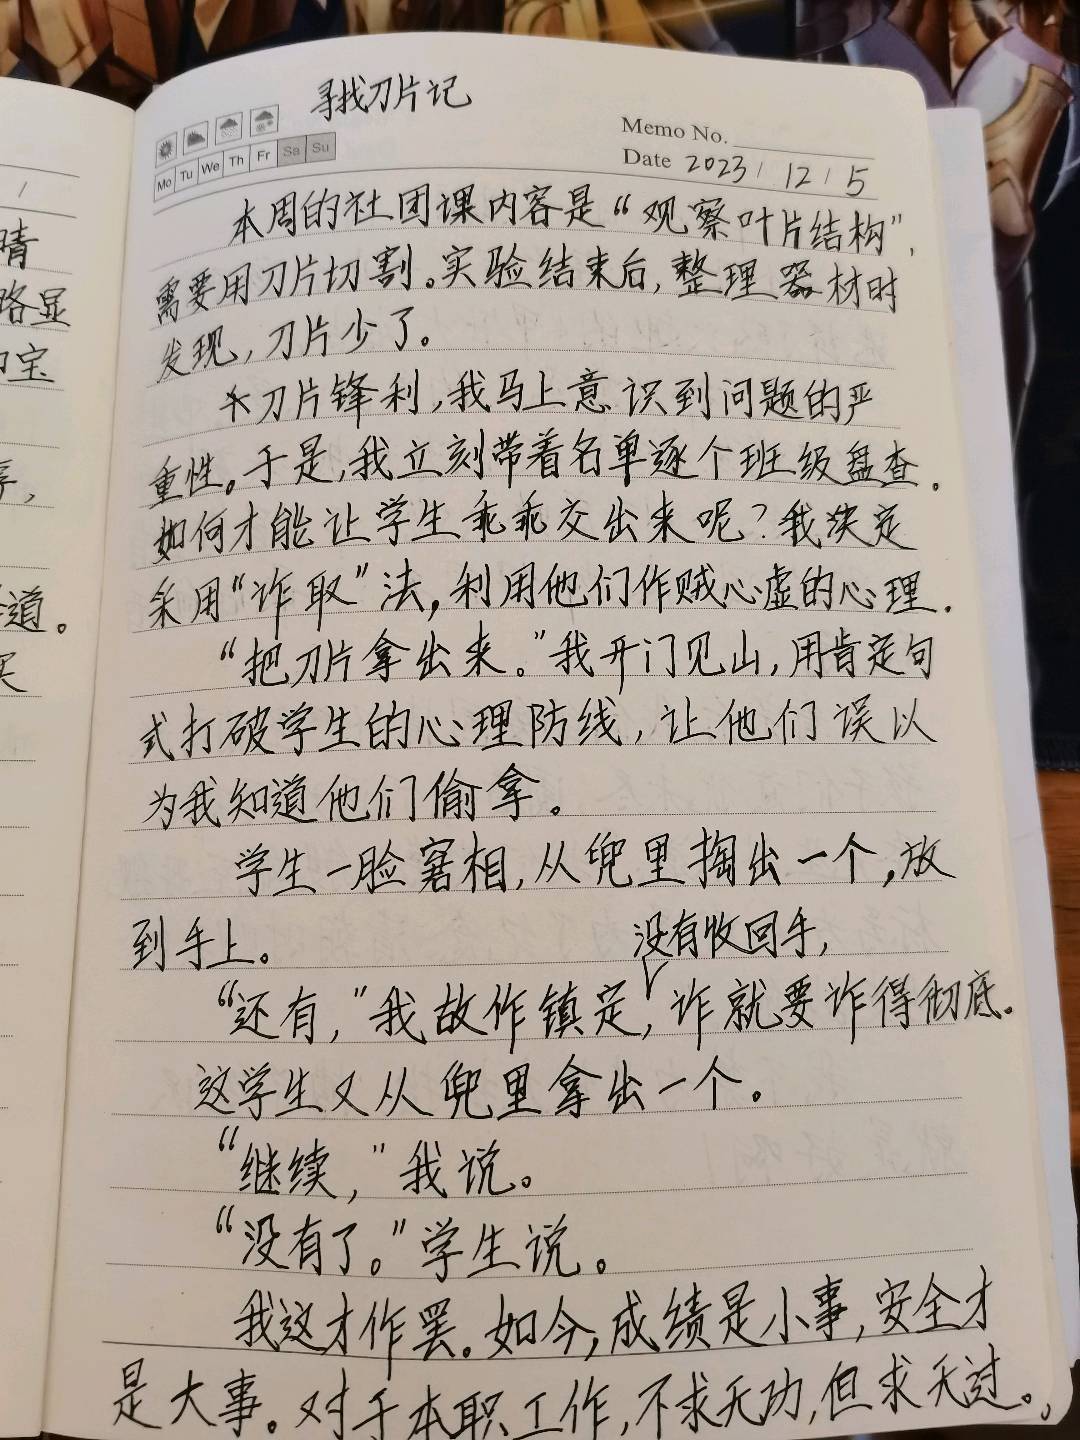 寻找刀片记
Mo Tu We Th Fr Sa Su
Memo No.
Date 2023 / 12 / 5
本周的社团课内容是“观察叶片结构”,
需要用刀片切割。实验结束后,整理器材时
发现,刀片少了。
刀片锋利,我马上意识到问题的严
重性。于是,我立刻带着名单逐个班级盘查。
如何才能让学生乖乖交出来呢?我决定
采用“诈取”法,利用他们作贼心虚的心理。
“把刀片拿出来。”我开门见山,用肯定句
式打破学生的心理防线,让他们误以
为我知道他们偷拿。
学生一脸窘相,从兜里掏出一个,放
到手上。
没有收回手,
“还有,”我故作镇定,诈就要诈得彻底。
这学生又从兜里拿出一个。
“继续,”我说。
“没有了。”学生说。
我这才作罢。如今,成绩是小事,安全才
是大事。对于本职工作,不求无功,但求无过。
晴
略显
宝
道。